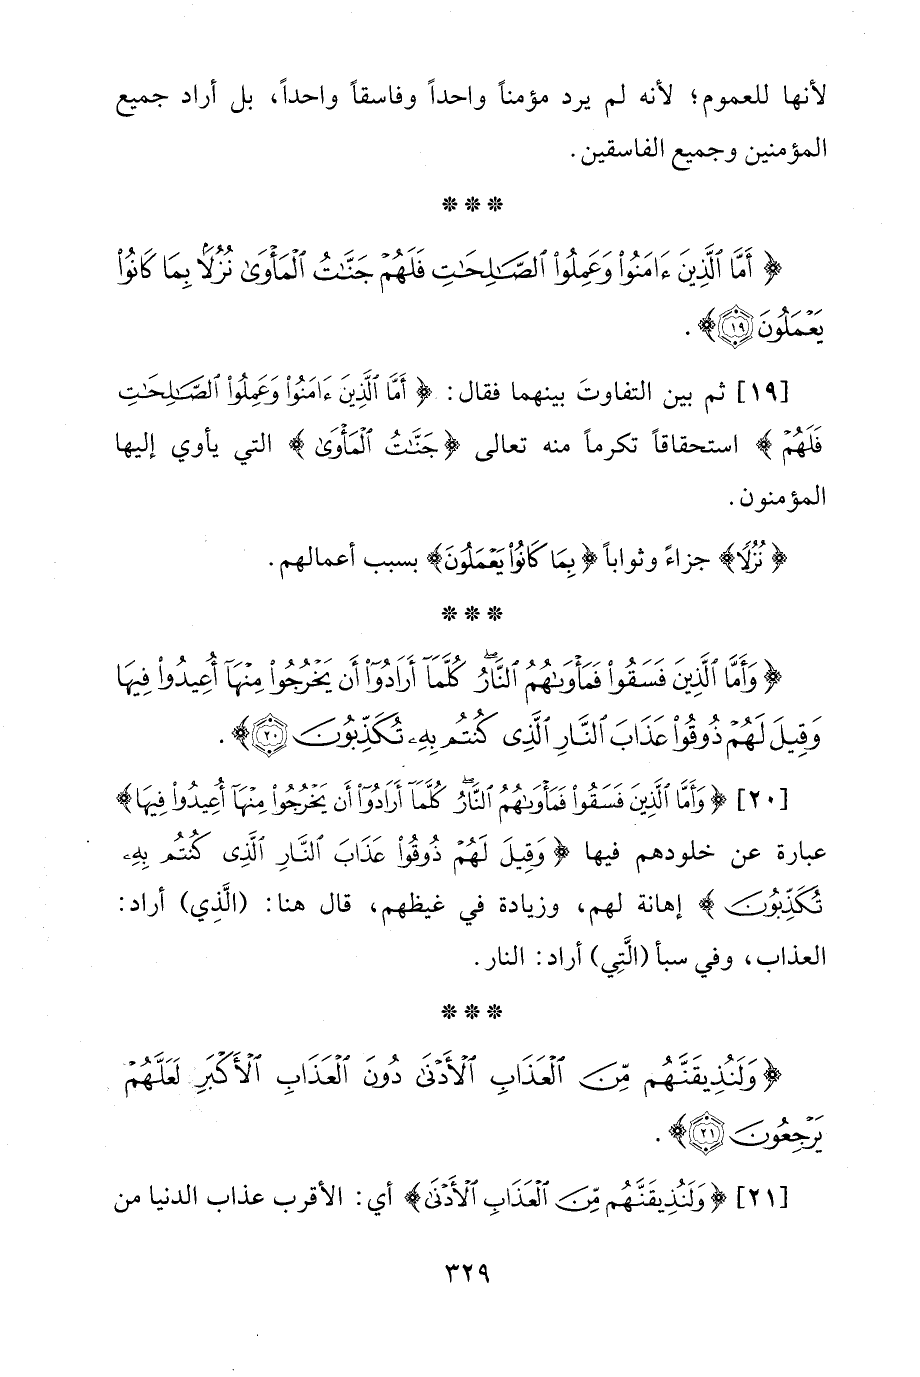 لأنها للعموم؛ لأنه لم يرد مؤمناً واحداً وفاسقاً واحداً، بل أراد جميع
المؤمنين وجميع الفاسقين.
* * *
﴿ أَمَّا ٱلَّذِينَ ءَامَنُوا۟ وَعَمِلُوا۟ ٱلصَّـٰلِحَـٰتِ فَلَهُمْ جَنَّـٰتُ ٱلْمَأْوَىٰ نُزُلًۢا بِمَا كَانُوا۟
يَعْمَلُونَ ١٩﴾ .
[١٩] ثم بين التفاوتَ بينهما فقال: ﴿ أَمَّا ٱلَّذِينَ ءَامَنُوا۟ وَعَمِلُوا۟ ٱلصَّـٰلِحَـٰتِ
فَلَهُمْ ﴾ استحقاقاً تكرماً منه تعالى ﴿جَنَّـٰتُ ٱلْمَأْوَىٰ ﴾ التي يأوي إليها
المؤمنون.
﴿ نُزُلًا﴾ جزاءً وثواباً ﴿ بِمَا كَانُوا۟ يَعْمَلُونَ﴾ بسبب أعمالهم.
* * *
﴿ وَأَمَّا ٱلَّذِينَ فَسَقُوا۟ فَمَأْوَىٰهُمُ ٱلنَّارُ ۖ كُلَّمَآ أَرَادُوٓا۟ أَن يَخْرُجُوا۟ مِنْهَآ أُعِيدُوا۟ فِيهَا
وَقِيلَ لَهُمْ ذُوقُوا۟ عَذَابَ ٱلنَّارِ ٱلَّذِى كُنتُم بِهِۦ تُكَذِّبُونَ ٢٠﴾ .
[٢٠] ﴿ وَأَمَّا ٱلَّذِينَ فَسَقُوا۟ فَمَأْوَىٰهُمُ ٱلنَّارُ ۖ كُلَّمَآ أَرَادُوٓا۟ أَن يَخْرُجُوا۟ مِنْهَآ أُعِيدُوا۟ فِيهَا﴾
عبارة عن خلودهم فيها ﴿ وَقِيلَ لَهُمْ ذُوقُوا۟ عَذَابَ ٱلنَّارِ ٱلَّذِى كُنتُم بِهِۦ
تُكَذِّبُونَ ﴾ إهانة لهم، وزيادة في غيظهم، قال هنا: (الَّذِي) أراد:
العذاب، وفي سبأ (الَّتِي) أراد: النار.
* * *
﴿ وَلَنُذِيقَنَّهُم مِّنَ ٱلْعَذَابِ ٱلْأَدْنَىٰ دُونَ ٱلْعَذَابِ ٱلْأَكْبَرِ لَعَلَّهُمْ
يَرْجِعُونَ ٢١﴾ .
[٢١] ﴿ وَلَنُذِيقَنَّهُم مِّنَ ٱلْعَذَابِ ٱلْأَدْنَىٰ﴾ أي: الأقرب عذاب الدنيا من
٣٢٩